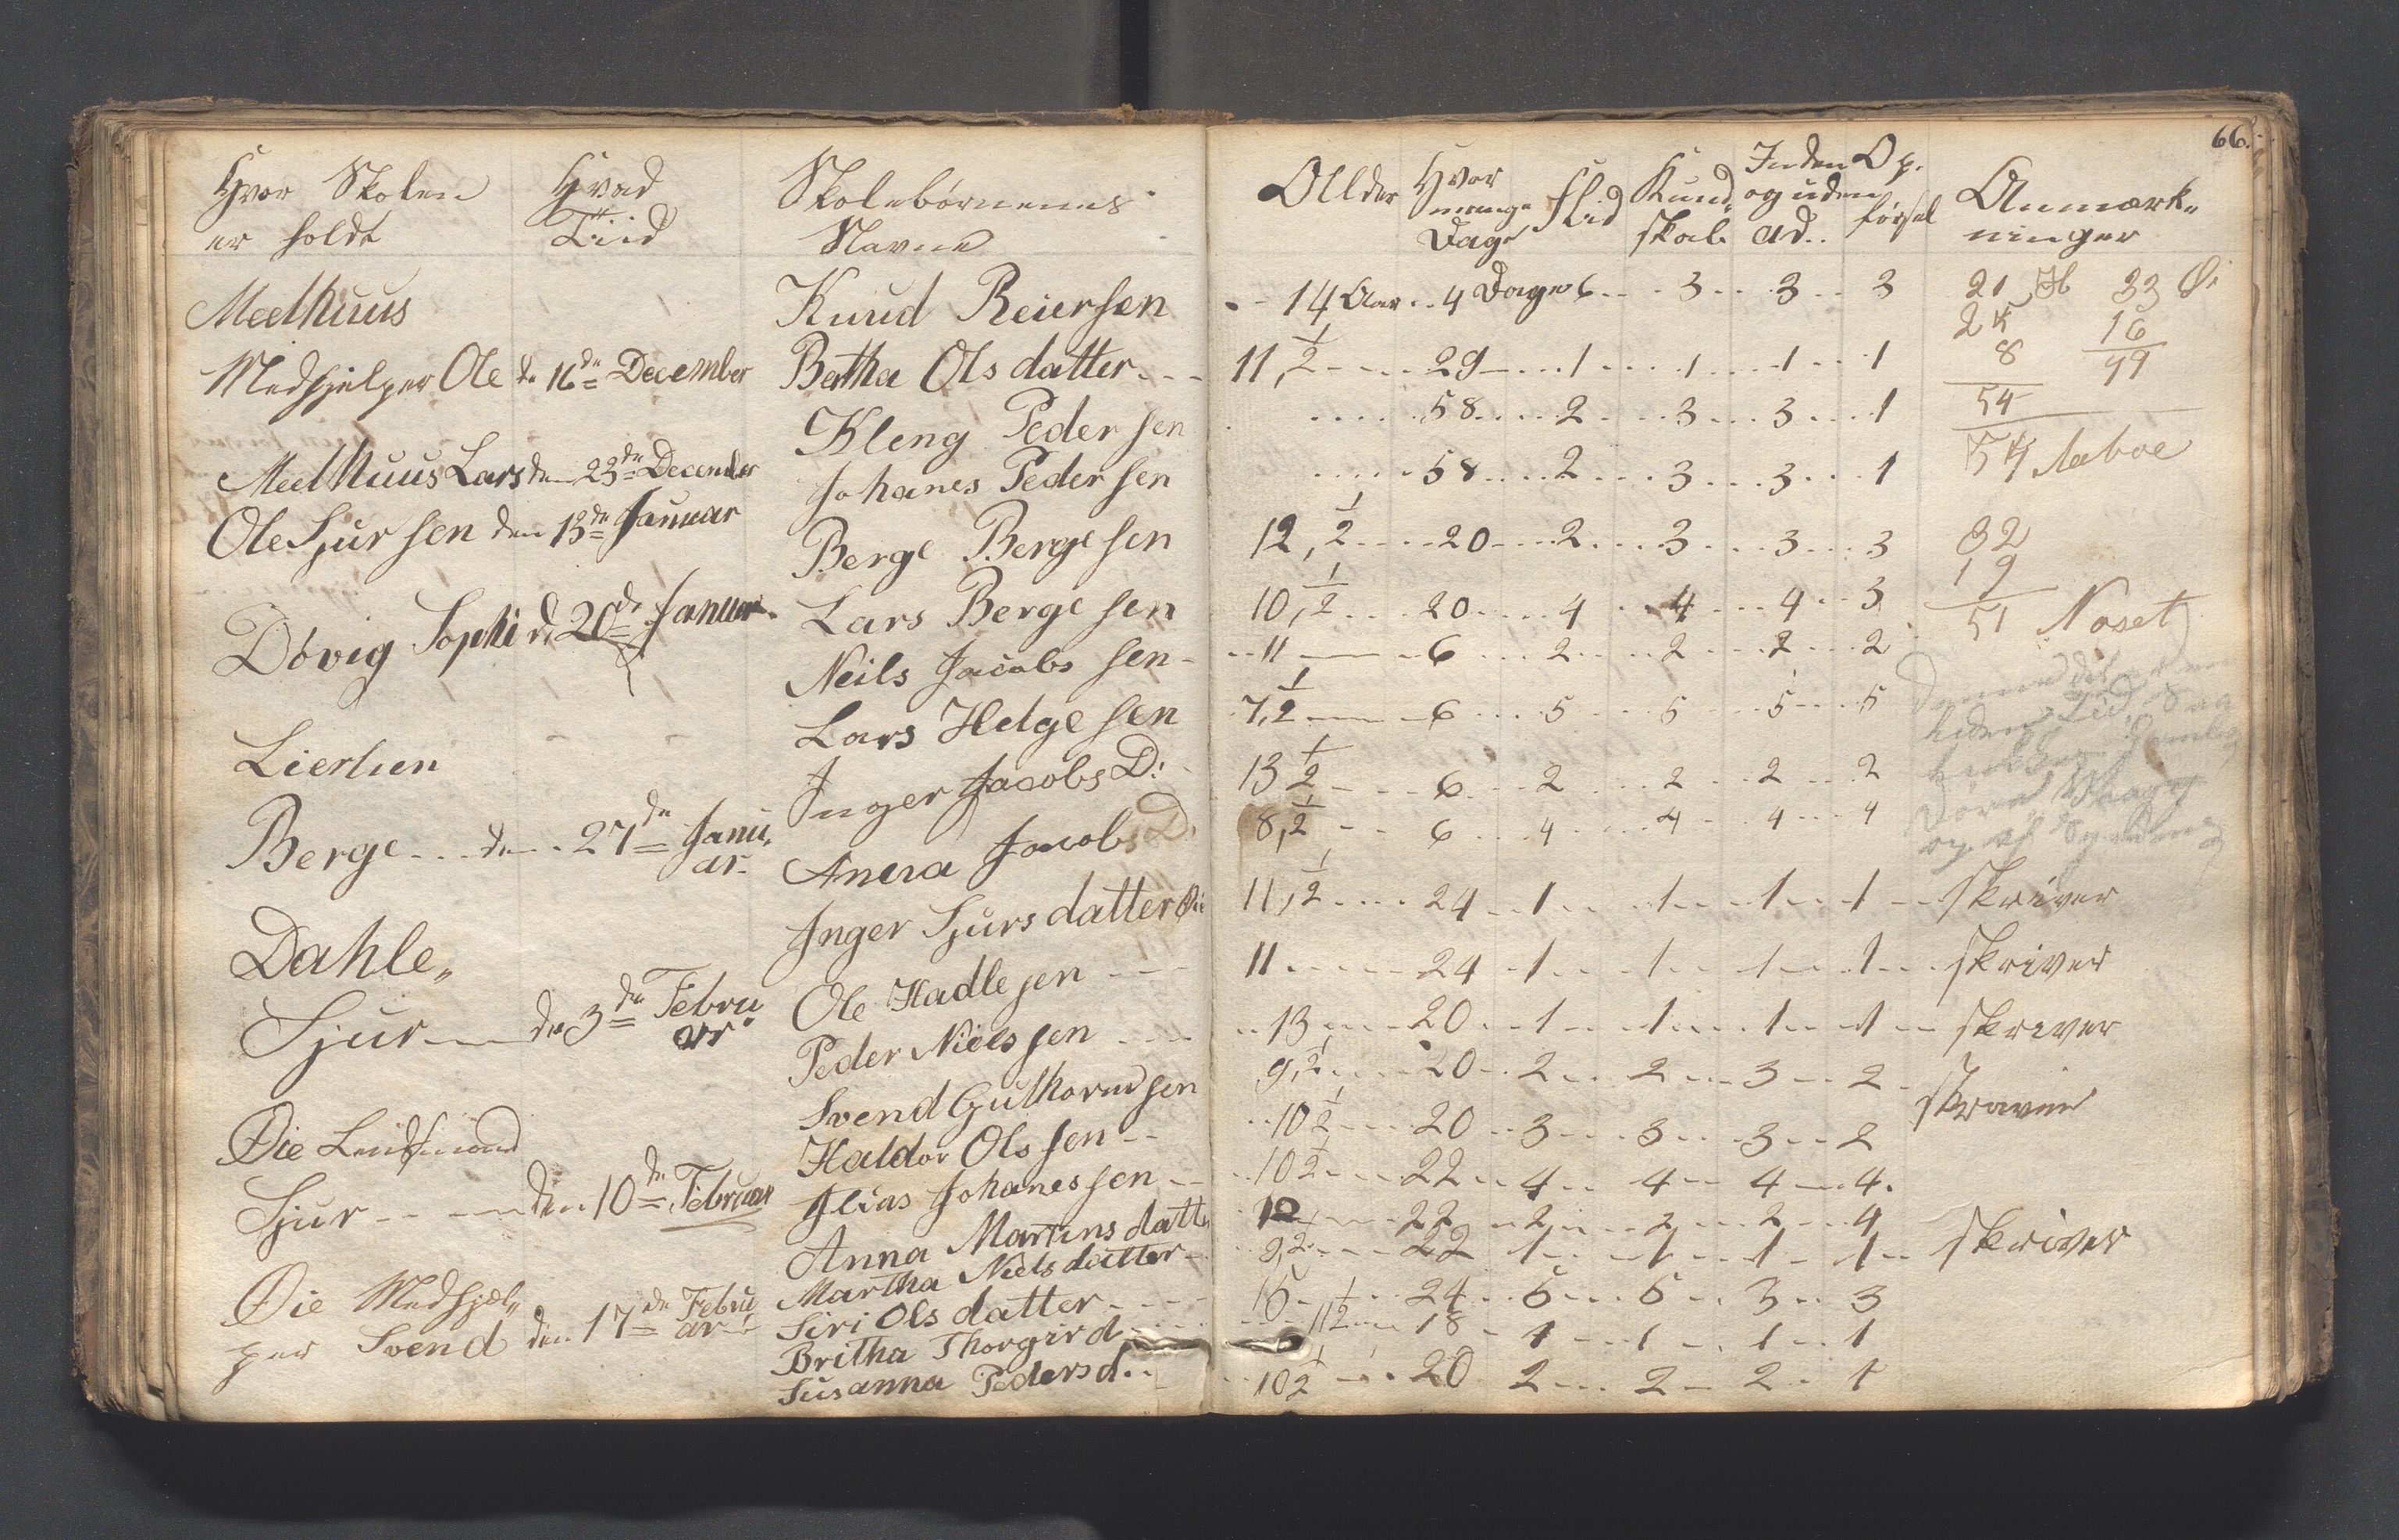 Hvor Skolen
er holdt
Hvad
Tiid
Skolebørnenes
Navne
Meelhuus
Medhjelper Ole d. 16de December
Meelhuus Lars den 23de December
Ole Sjursen den 13de Januar
Døvig Sophi d. 20de Januar.
Lierhen
Berge den 27de Janu,
ar.
Dahle,,
Sjur den 3de Febru
ar
Øie Lensmand
Sjur den 10de Februar
Øie Medhjel,,
per Svend den 17de Febru
ar
Knud Reiersen
Bertha Ols datter
Kleng Pedersen
Johanes Pedersen
Berge Bergesen
Lars Bergesen
Neils Jacobs sen
Lars Helgesen
Inger Jacobs D:
Anna Jacobs D.
Inger Sjurs datter Øie
Ole Hadlesen
Peder Nielssen
Svend Guthormsen
Haldor Olssen
Elias Johanessen
Anna Martins datt
Martha Niels datter
Siri Ols datter
Britha Thorgird
Susanna Pedersd..
66.
Allder
Hvor
mange
Dage
Flid
Kund,
skab
Inden
og uden
ad..
Op.
førsel
Anmærk,,
ninger
14 Aar .. 4 Dage 6 3 3 3
11,1/2 29 1 1 1 1
58 2 3 3 1
58 2 3 3 1
12,1/2 20 2 3 3 3
10,1/2 20 4 4 4 3
11 6 2 2 2 2
7,1/2 6 5 5 5 5
13 1/2 6 2 2 2 2
8,1/2 6 4 4 4 4
11,1/2 24 1 1 1 1 skriver
11 24 1 1 1 1 skriver
13 20 1 1 1 1 skriver
9,1/2 20 2 2 3 2 skriver
10 1/2 20 3 3 3 2
10 1/2 22 4 4 4 4.
10 22 2 2 2 4
9,1/2 22 1 1 1 1 skriver
15 24 5 5 3 3
11 1/2 18 1 1 1 1
10 1/2 20 2 2 2 1
21 H 33 Ø:
25 16
8 49
54
54 Aaboe
32
19
51 Noset